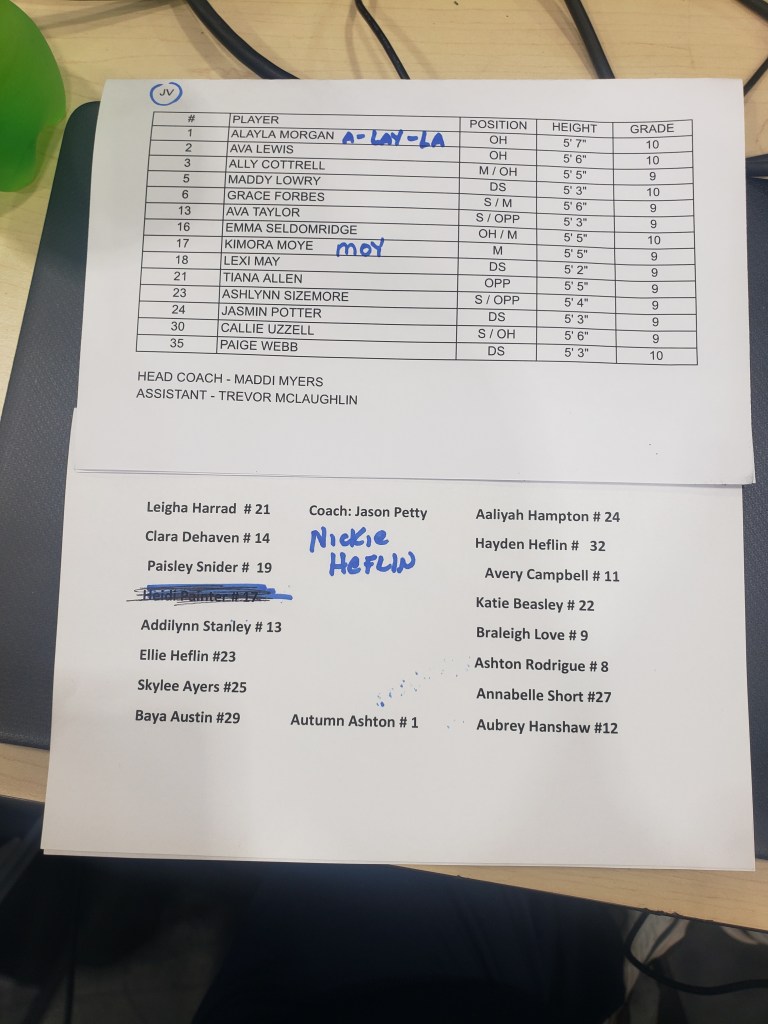 JV
# PLAYER POSITION HEIGHT GRADE
1 ALAYLA MORGAN A-LAY-LA OH 5' 7" 10
2 AVA LEWIS OH 5' 6" 10
3 ALLY COTTRELL M / OH 5' 5" 9
5 MADDY LOWRY DS 5' 3" 10
6 GRACE FORBES S / M 5' 6" 9
13 AVA TAYLOR S / OPP 5' 3" 9
16 EMMA SELDOMRIDGE OH / M 5' 5" 10
17 KIMORA MOYE MOY M 5' 5" 9
18 LEXI MAY DS 5' 2" 9
21 TIANA ALLEN OPP 5' 5" 9
23 ASHLYNN SIZEMORE S / OPP 5' 4" 9
24 JASMIN POTTER DS 5' 3" 9
30 CALLIE UZZELL S / OH 5' 6" 9
35 PAIGE WEBB DS 5' 3" 10
HEAD COACH - MADDI MYERS
ASSISTANT - TREVOR MCLAUGHLIN
Leigha Harrad # 21 Coach: Jason Petty Aaliyah Hampton # 24
Clara Dehaven # 14 Nickie Hayden Heflin # 32
Paisley Snider # 19 HEFLIN Avery Campbell # 11
Heidi Painter # 17 Katie Beasley # 22
Addilynn Stanley # 13 Braleigh Love # 9
Ellie Heflin #23 Ashton Rodrigue # 8
Skylee Ayers #25 Annabelle Short #27
Baya Austin #29 Autumn Ashton # 1 Aubrey Hanshaw #12